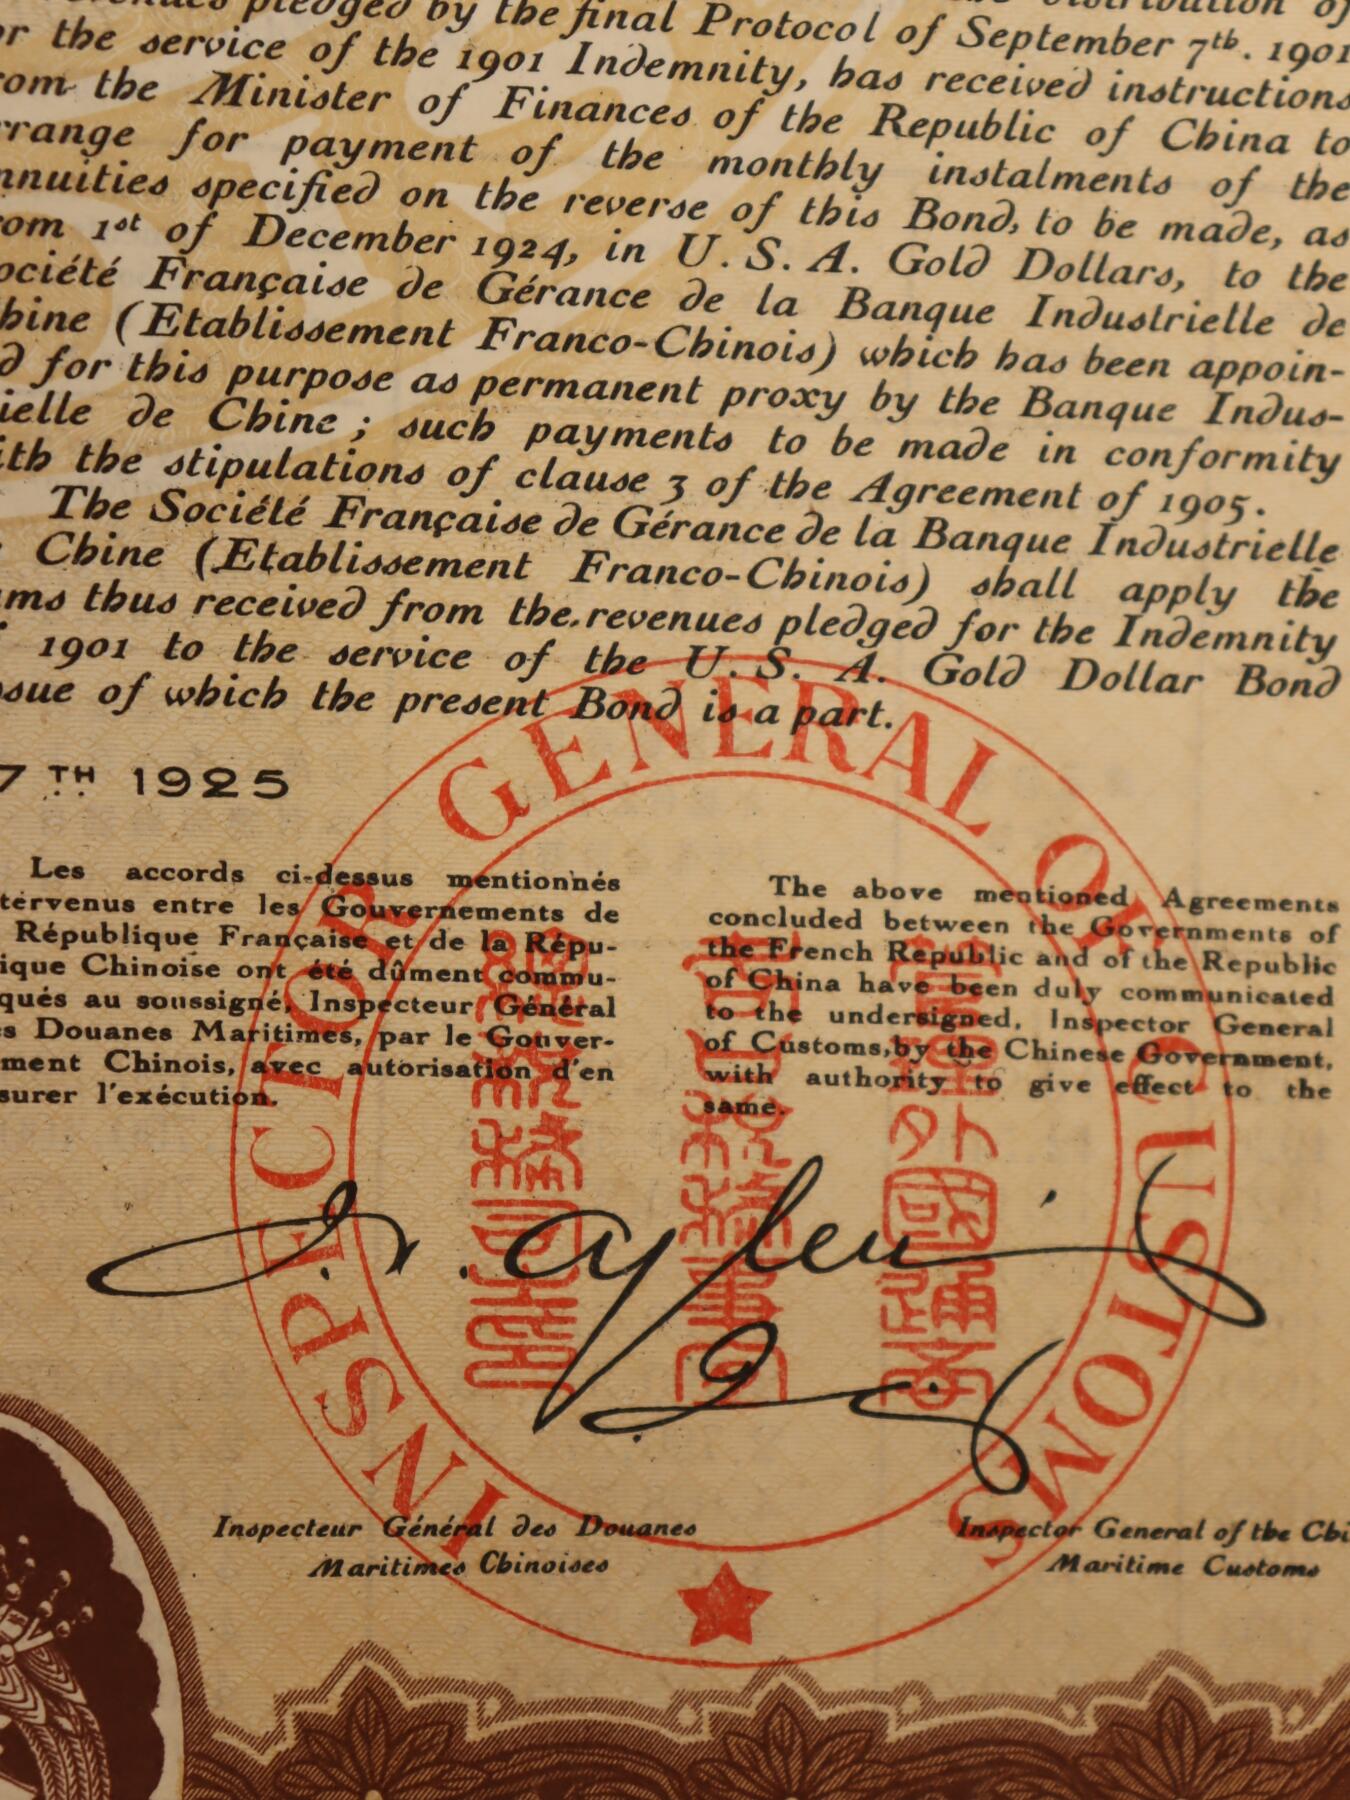 revenues pledged by the final Protocol of September 7th. 1901
for the service of the 1901 Indemnity, has received instructions
from the Minister of Finances of the Republic of China to
arrange for payment of the monthly instalments of the
annuities specified on the reverse of this Bond, to be made, as
from 1st of December 1924, in U. S. A. Gold Dollars, to the
Société Française de Gérance de la Banque Industrielle de
Chine (Etablissement Franco-Chinois) which has been appoin-
d for this purpose as permanent proxy by the Banque Indus-
ielle de Chine ; such payments to be made in conformity
ith the stipulations of clause 3 of the Agreement of 1905.
The Société Française de Gérance de la Banque Industrielle
Chine (Etablissement Franco-Chinois) shall apply the
ums thus received from the revenues pledged for the Indemnity
1901 to the service of the U. S. A. Gold Dollar Bond
ssue of which the present Bond is a part.
7TH 1925
Les accords ci-dessus mentionnés
tervenus entre les Gouvernements de
République Française et de la Répu-
ique Chinoise ont été dûment commu-
qués au soussigné, Inspecteur Général
es Douanes Maritimes, par le Gouver-
ment Chinois, avec autorisation d'en
surer l'exécution.
The above mentioned Agreements
concluded between the Governments of
the French Republic and of the Republic
of China have been duly communicated
to the undersigned, Inspector General
of Customs, by the Chinese Government,
with authority to give effect to the
same.
INSPECTOR GENERAL OF CUSTOMS
Inspecteur Général des Douanes
Maritimes Chinoises
Inspector General of the Chi
Maritime Customs